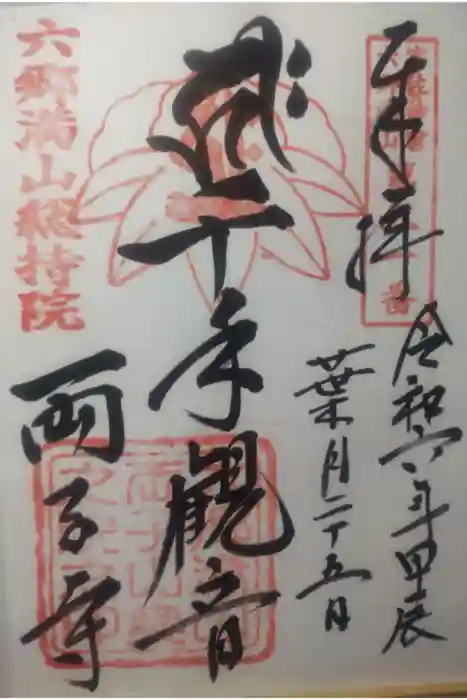 奉拝
令和六年甲辰
葉月二十五日
千手観音
六郷満山総持院
両子寺